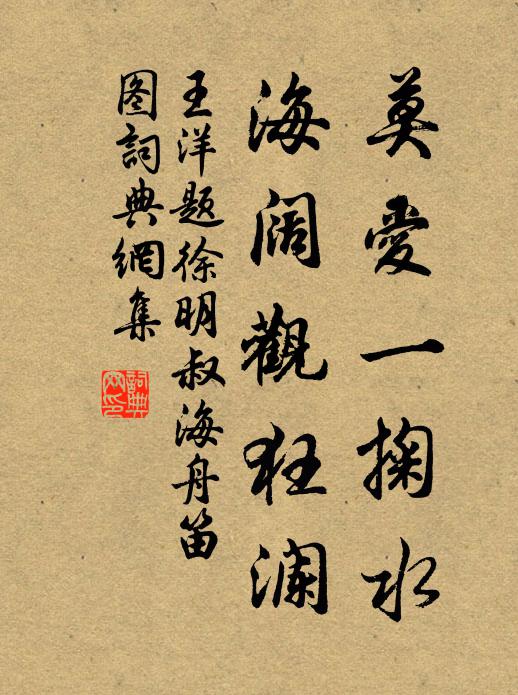 莫愛一掬水
海阔觀狂澜
王洋题徐明叔海舟笛
图詞典網集
詞典网印